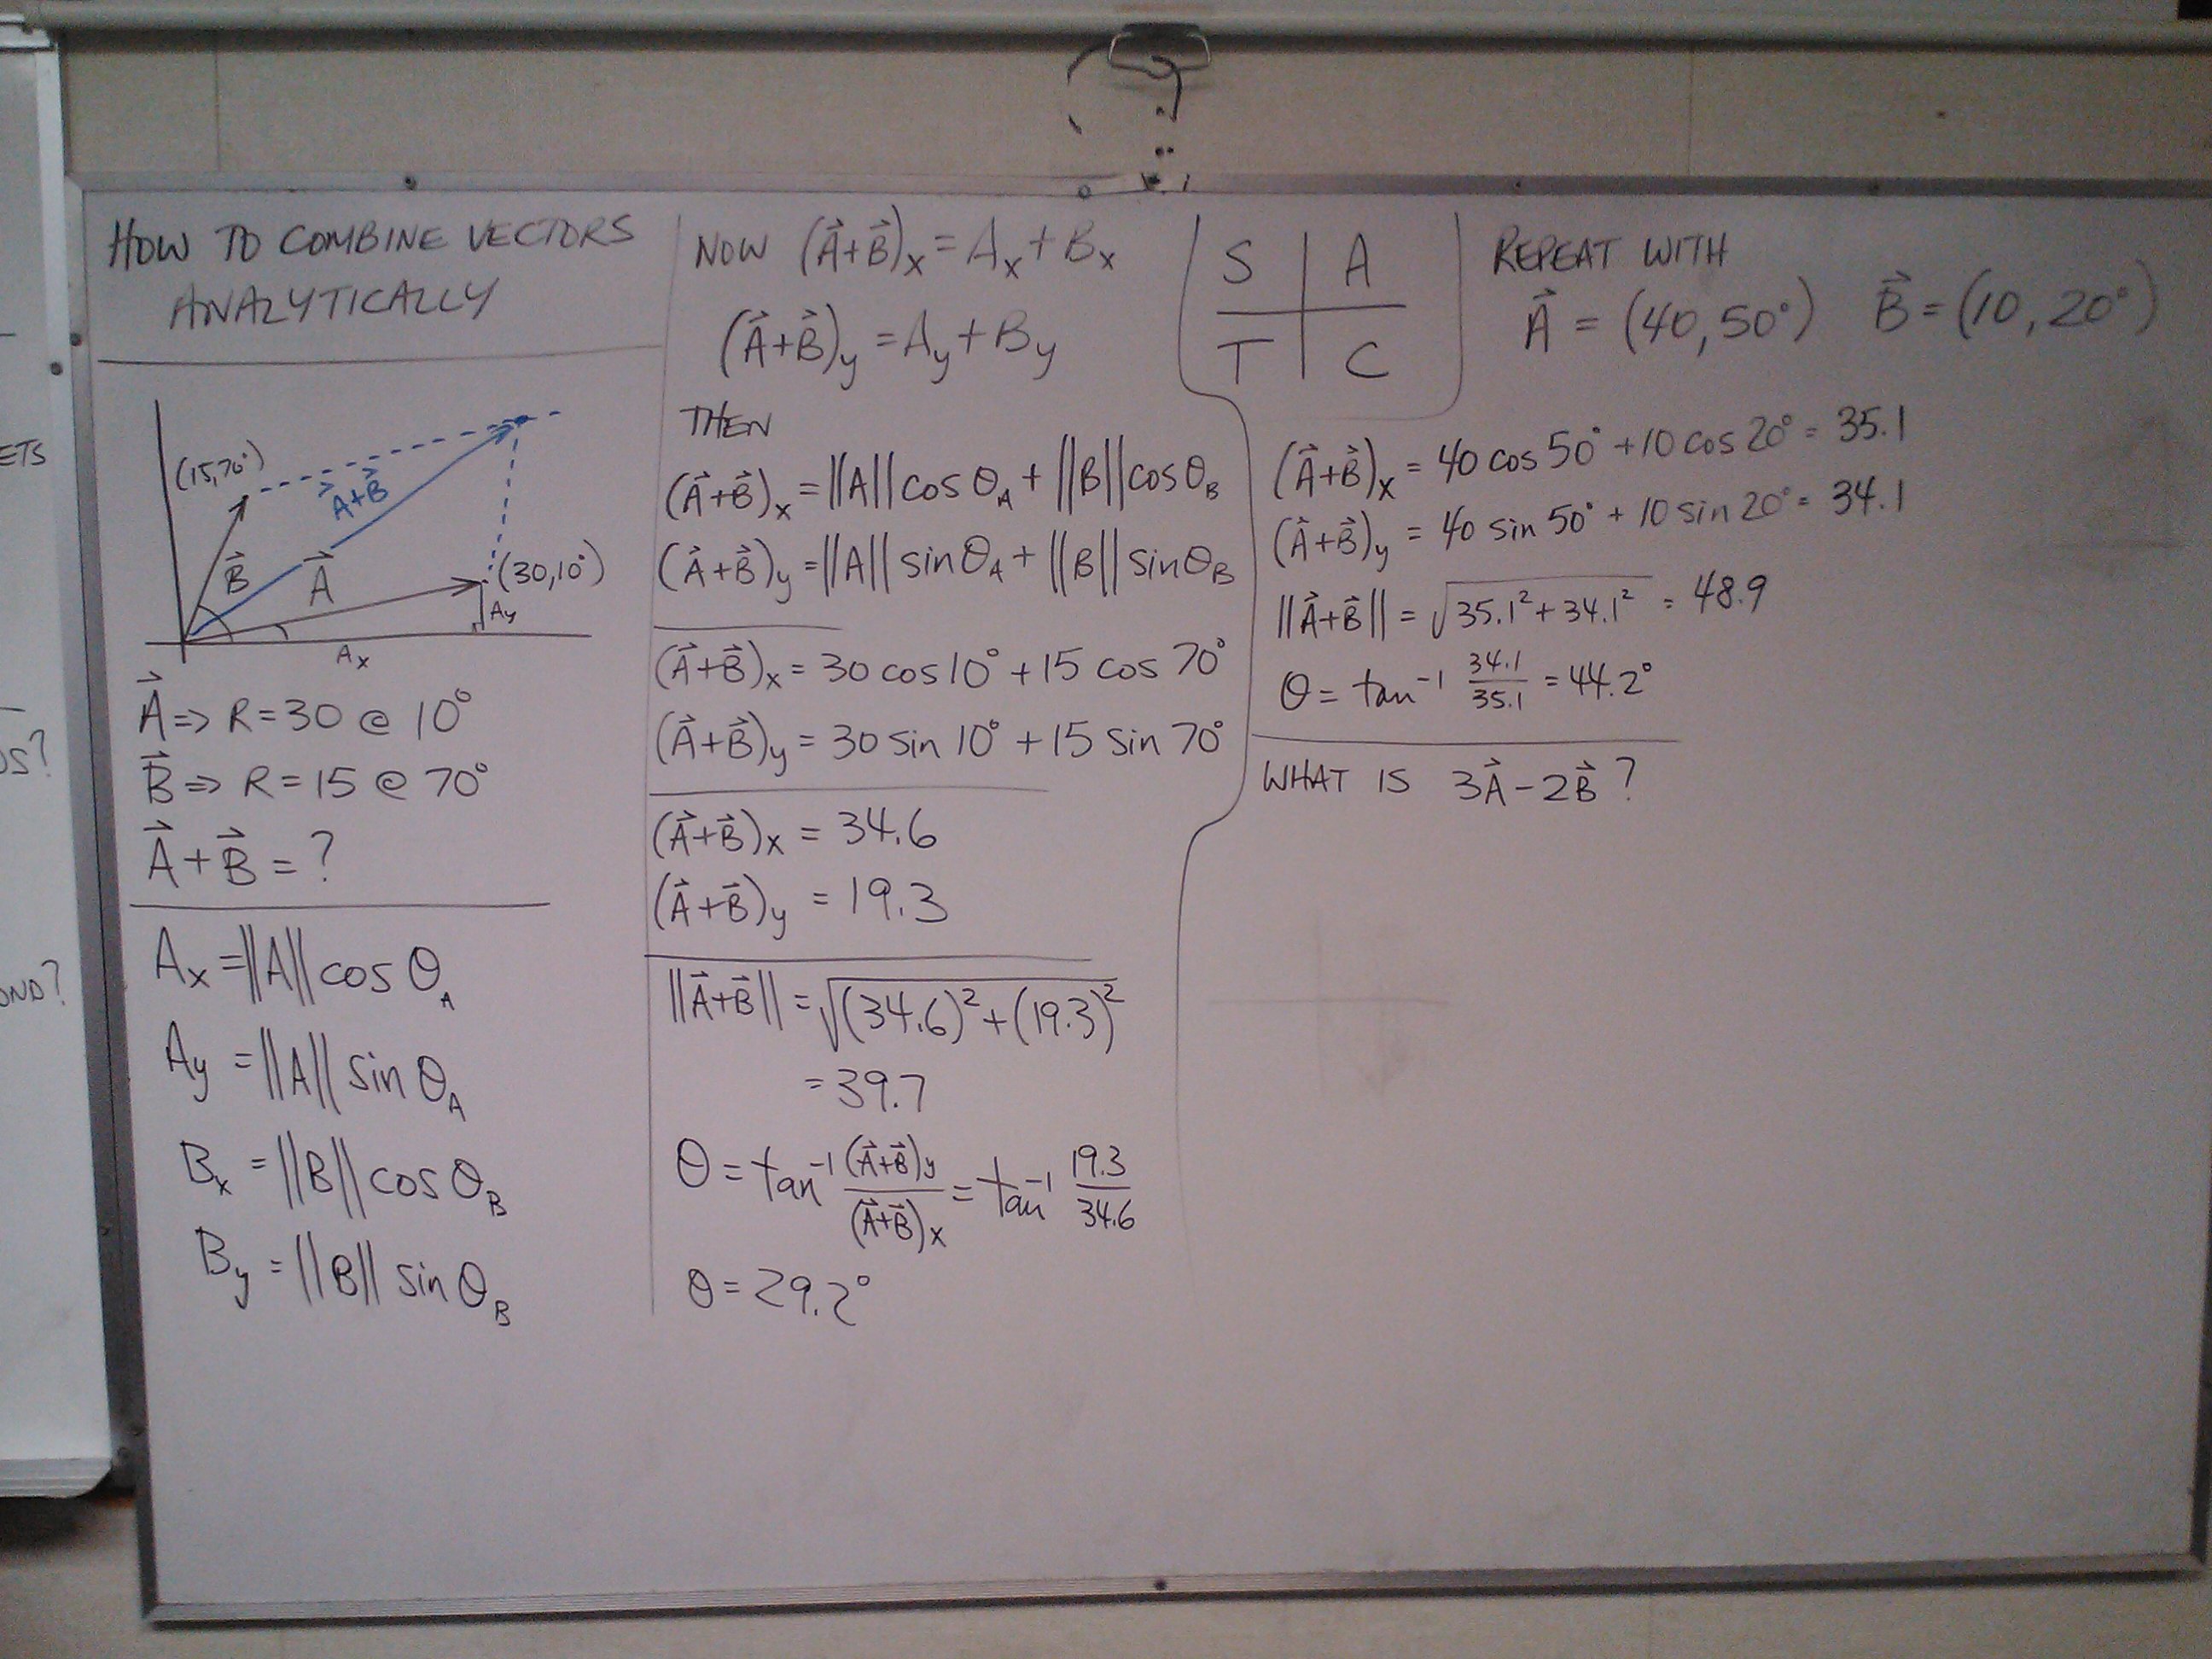 HOW TO COMBINE VECTORS
ANALYTICALLY
(15,70°)
A⃗+B⃗
B⃗
A⃗
(30,10°)
Ay
Ax
A⃗ => R=30 @ 10°
B⃗ => R=15 @ 70°
A⃗+B⃗ = ?
Ax = ||A|| cos θA
Ay = ||A|| sin θA
Bx = ||B|| cos θB
By = ||B|| sin θB
NOW (A⃗+B⃗)x = Ax + Bx
(A⃗+B⃗)y = Ay + By
THEN
(A⃗+B⃗)x = ||A|| cos θA + ||B|| cos θB
(A⃗+B⃗)y = ||A|| sin θA + ||B|| sin θB
(A⃗+B⃗)x = 30 cos 10° + 15 cos 70°
(A⃗+B⃗)y = 30 sin 10° + 15 sin 70°
(A⃗+B⃗)x = 34.6
(A⃗+B⃗)y = 19.3
||A⃗+B⃗|| = √(34.6)²+(19.3)²
= 39.7
θ = tan⁻¹ (A⃗+B⃗)y/(A⃗+B⃗)x = tan⁻¹ 19.3/34.6
θ = 29.2°
S A
T C
REPEAT WITH
A⃗ = (40,50°) B⃗ = (10,20°)
(A⃗+B⃗)x = 40 cos 50° + 10 cos 20° = 35.1
(A⃗+B⃗)y = 40 sin 50° + 10 sin 20° = 34.1
||A⃗+B⃗|| = √35.1²+34.1² = 48.9
θ = tan⁻¹ 34.1/35.1 = 44.2°
WHAT IS 3A⃗-2B⃗ ?
ETS
OS?
OND?